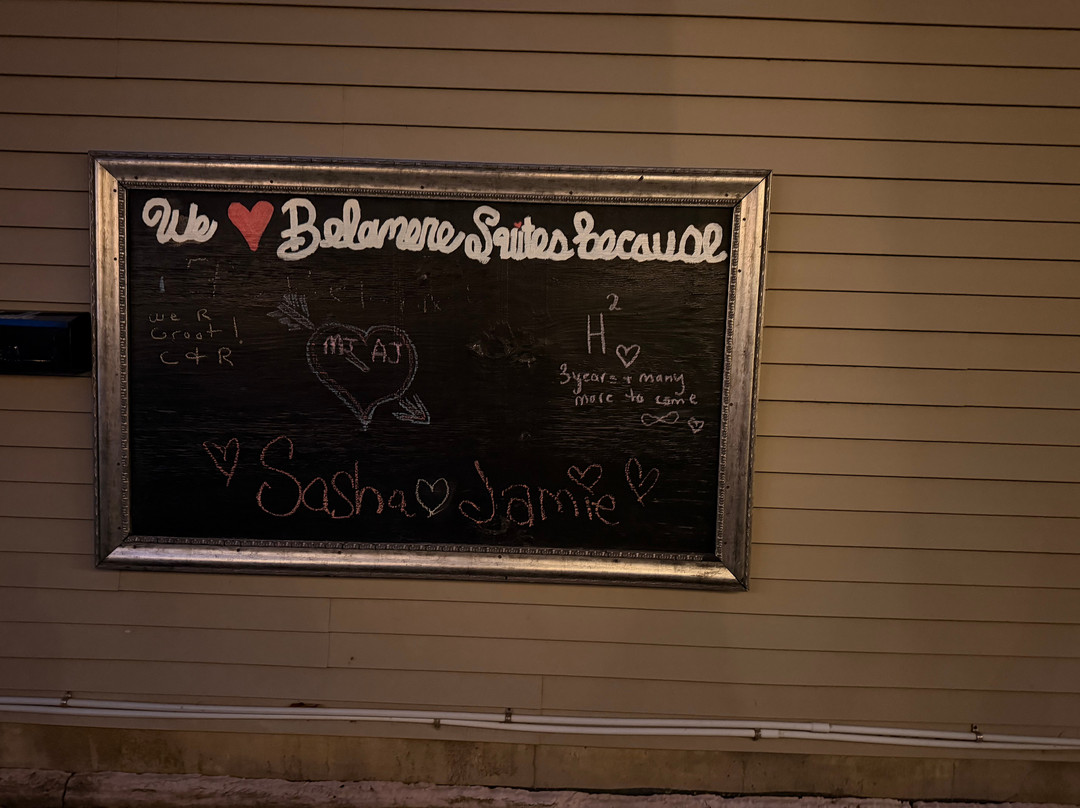 We ♥ Belamere Suites because
we R
Groot!
C & R
MJ AJ
H²
3 years + many
more to come
Sasha ♡ Jamie